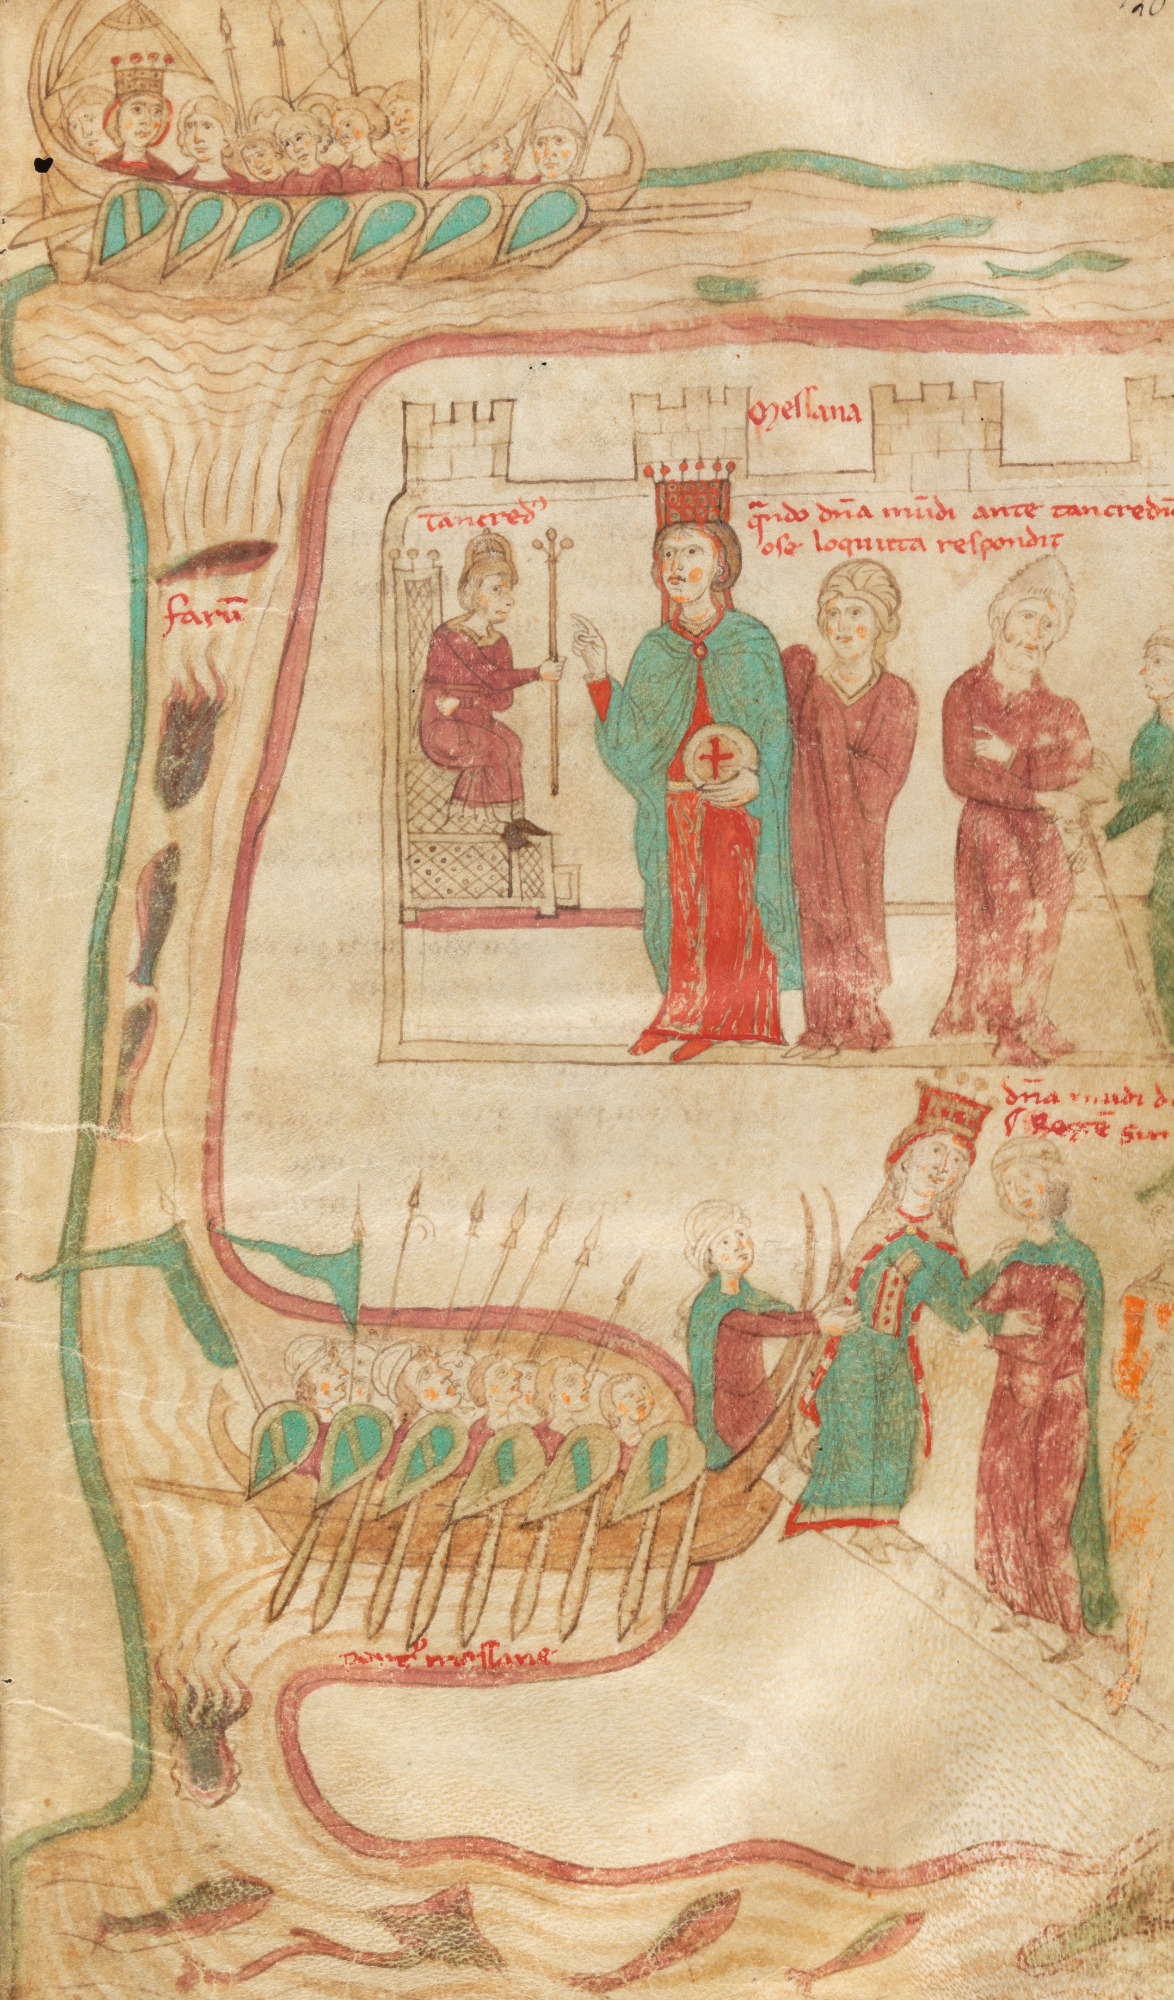 120
Messana
Tancred'
Qn̄do dn̄a mūdi ante tancrediū
ose loquuta respondit
farū
dn̄a mūdi
portꝰ messane